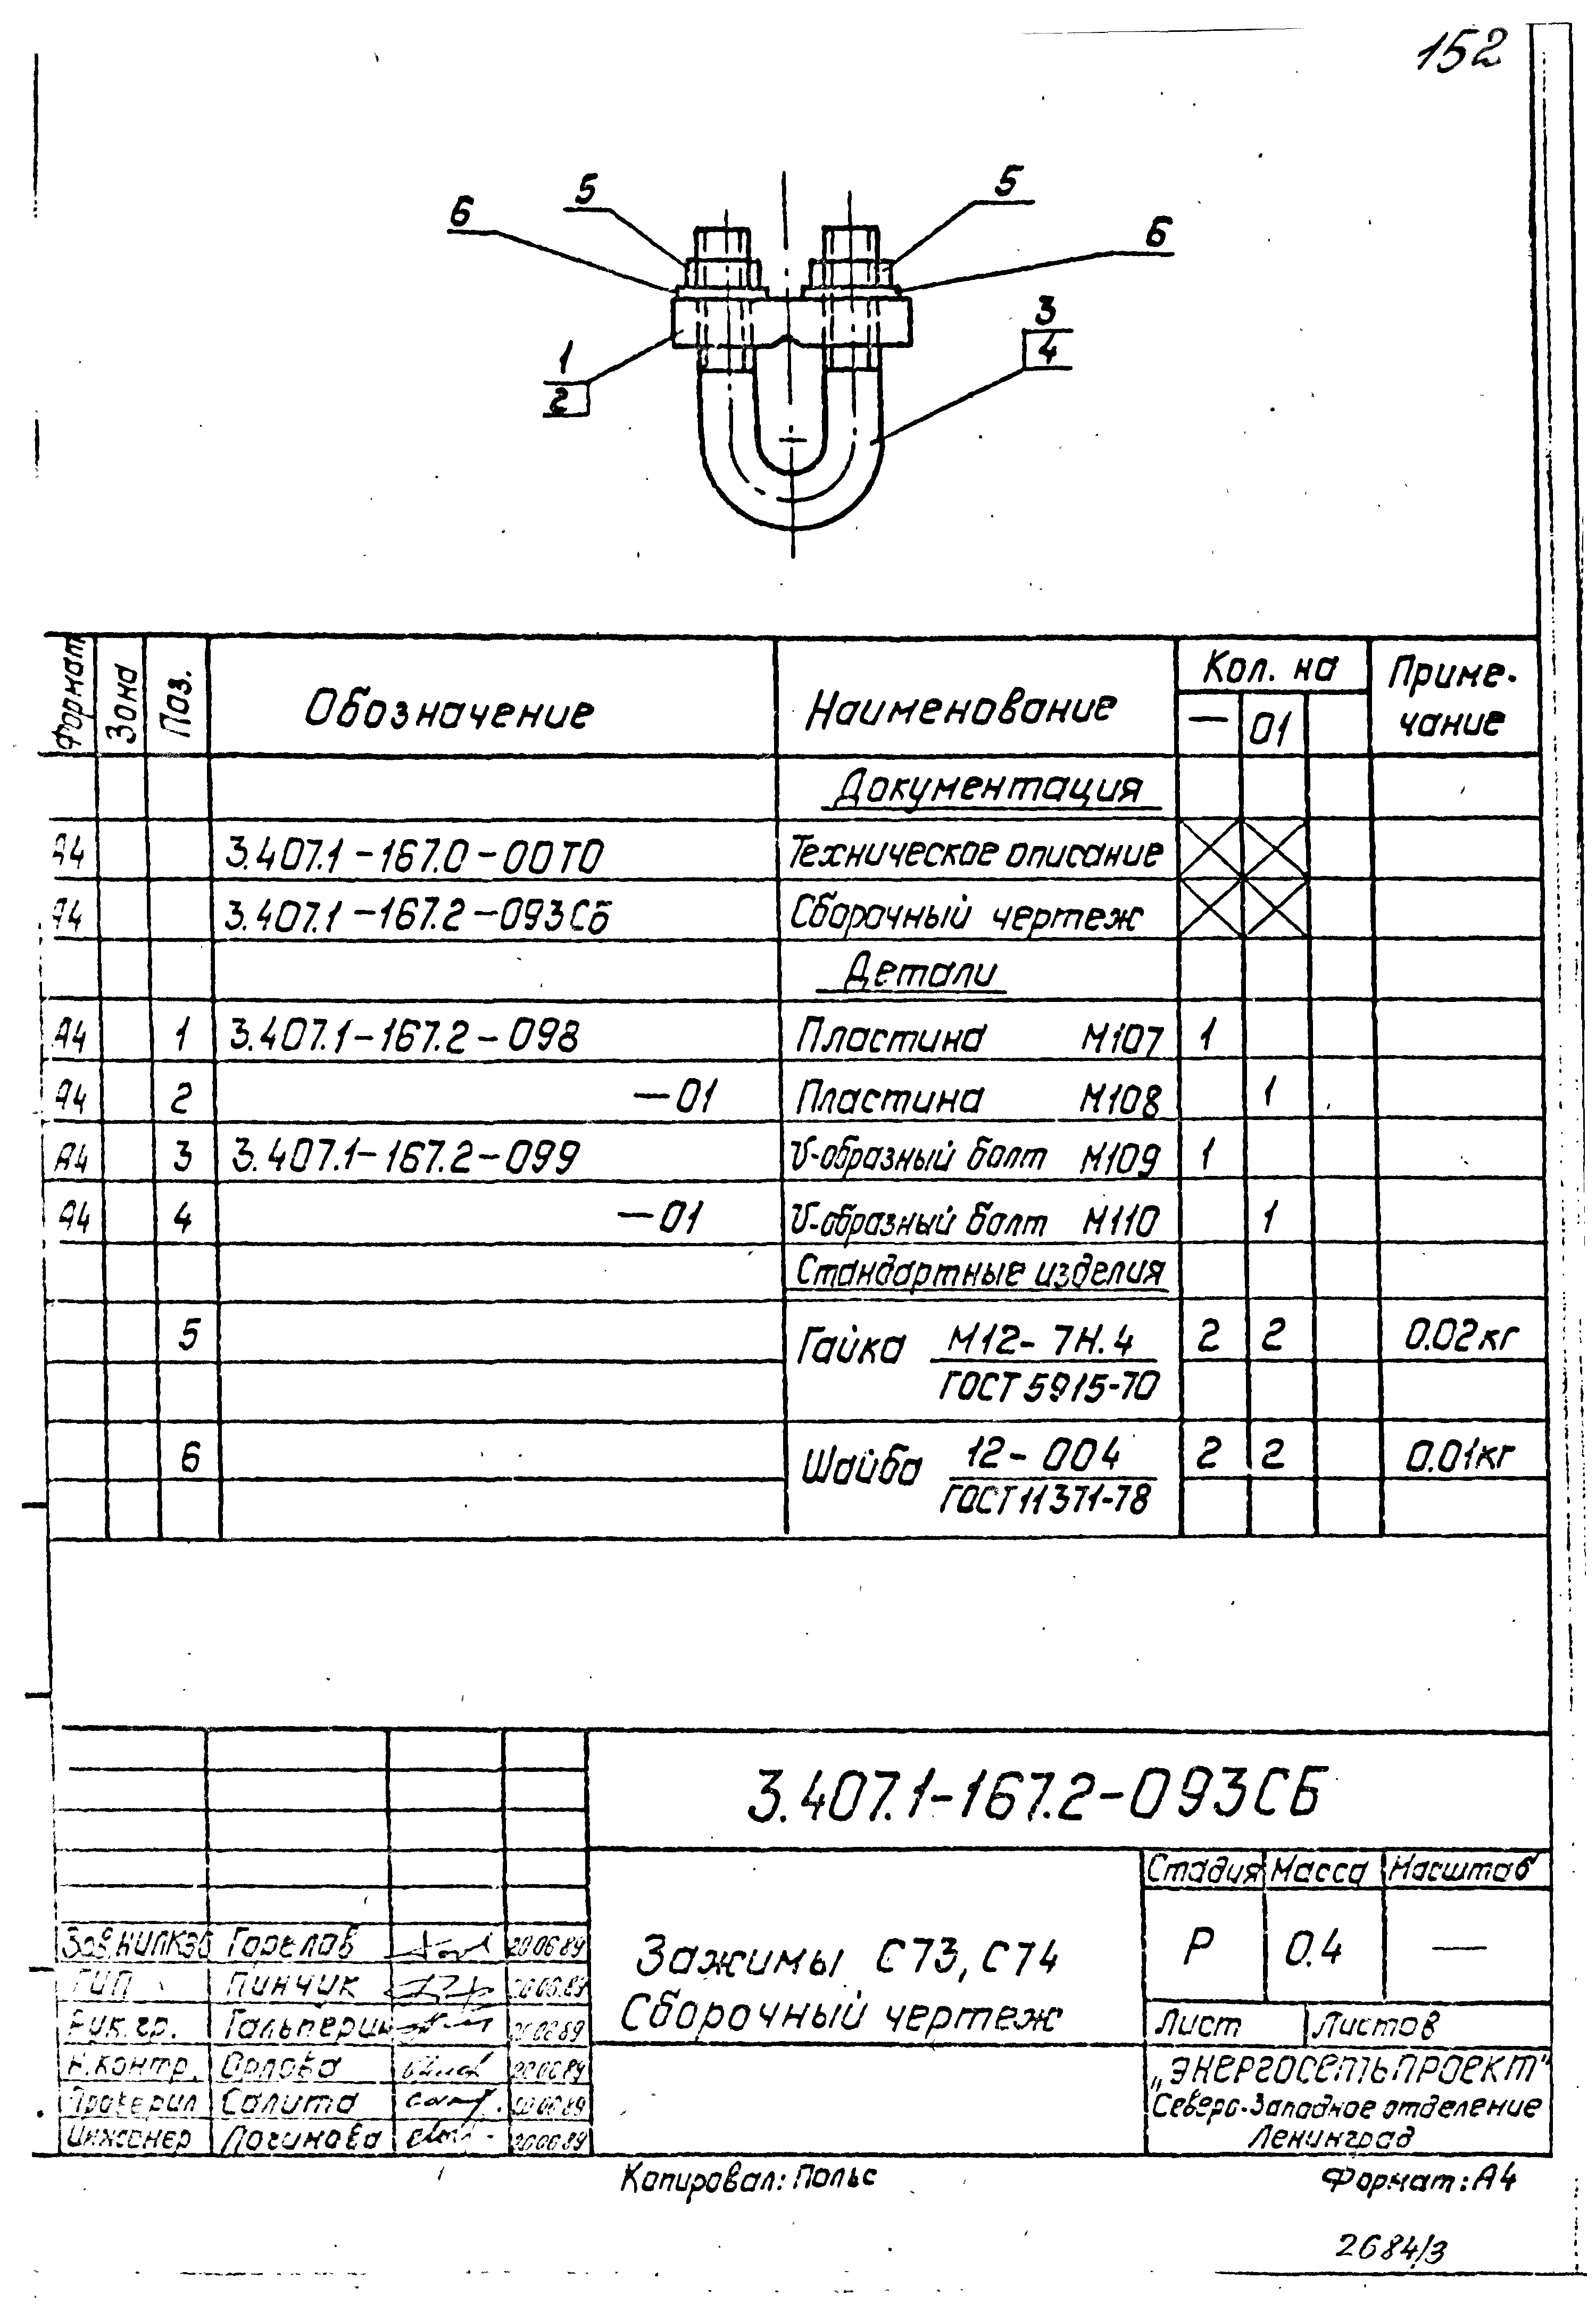 152
5
5
6
6
3
4
1
2
Формат Зона Поз. Обозначение Наименование Кол. на Приме-
— 01 чание
Документация
А4 3.407.1-167.0-00ТО Техническое описание
А4 3.407.1-167.2-093Сб Сборочный чертеж
Детали
А4 1 3.407.1-167.2-098 Пластина М107 1
А4 2 —01 Пластина М108 1
А4 3 3.407.1-167.2-099 U-образный болт М109 1
А4 4 —01 U-образный болт М110 1
Стандартные изделия
5 Гайка М12-7Н.4 2 2 0.02кг
ГОСТ 5915-70
6 Шайба 12-004 2 2 0.01кг
ГОСТ 11371-78
3.407.1-167.2-093СБ
Стадия Масса Масштаб
Р 0.4 —
Зажимы С73, С74
Сборочный чертеж
Лист Листов
„ЭНЕРГОСЕТЬПРОЕКТ"
Северо-Западное отделение
Ленинград
Зав.НИЛКЭС Горелов 20.06.89
ГИП Пинчук 20.06.89
Рук. гр. Гальперин 20.06.89
Н. контр. Орлова 20.06.89
Проверил Салита 20.06.89
Инженер Логинова 20.06.89
Копировал: Польс
Формат: А4
2684/3